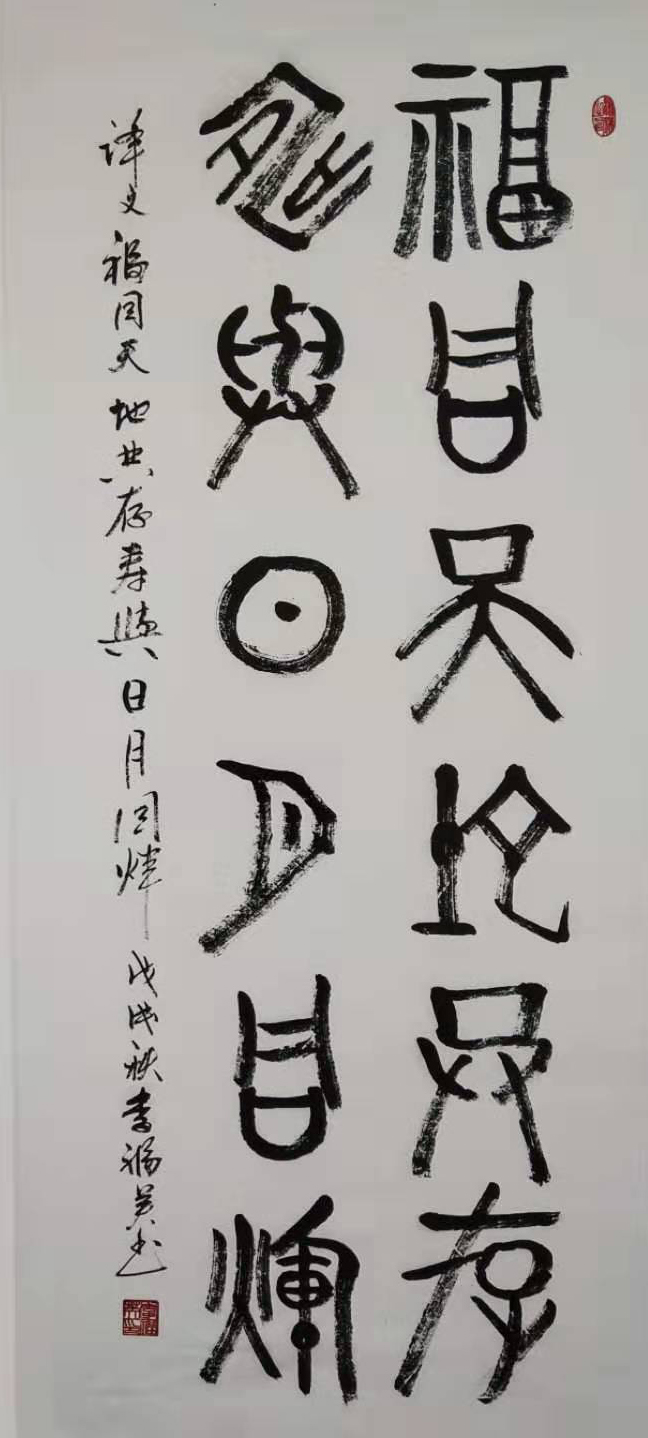 福同天地共存
寿與日月同輝
译文 福同天地共存寿與日月同煇 戊戌秋李福英书